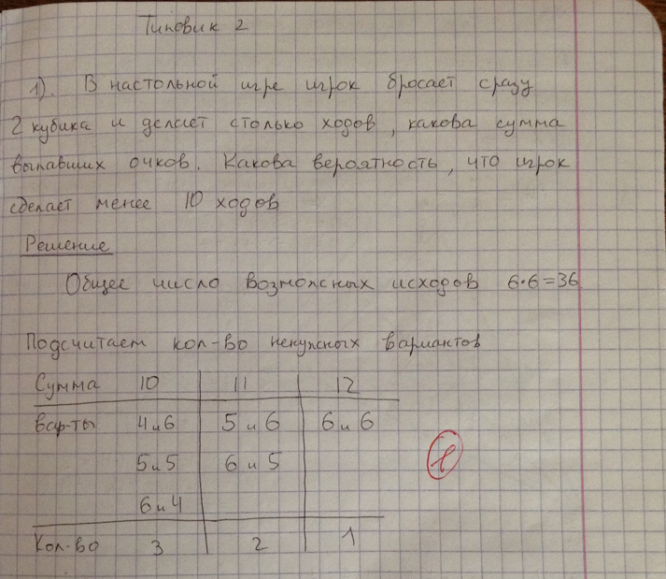 Типовик 2
1). В настольной игре игрок бросает сразу
2 кубика и делает столько ходов, какова сумма
выпавших очков. Какова вероятность, что игрок
сделает менее 10 ходов
Решение
Общее число возможных исходов 6·6=36
Подсчитаем кол-во ненужных вариантов
Сумма 10 11 12
Вар-ты 4и6 5 и 6 6 и 6
5и5 6 и 5
6и4
Кол-во 3 2 1